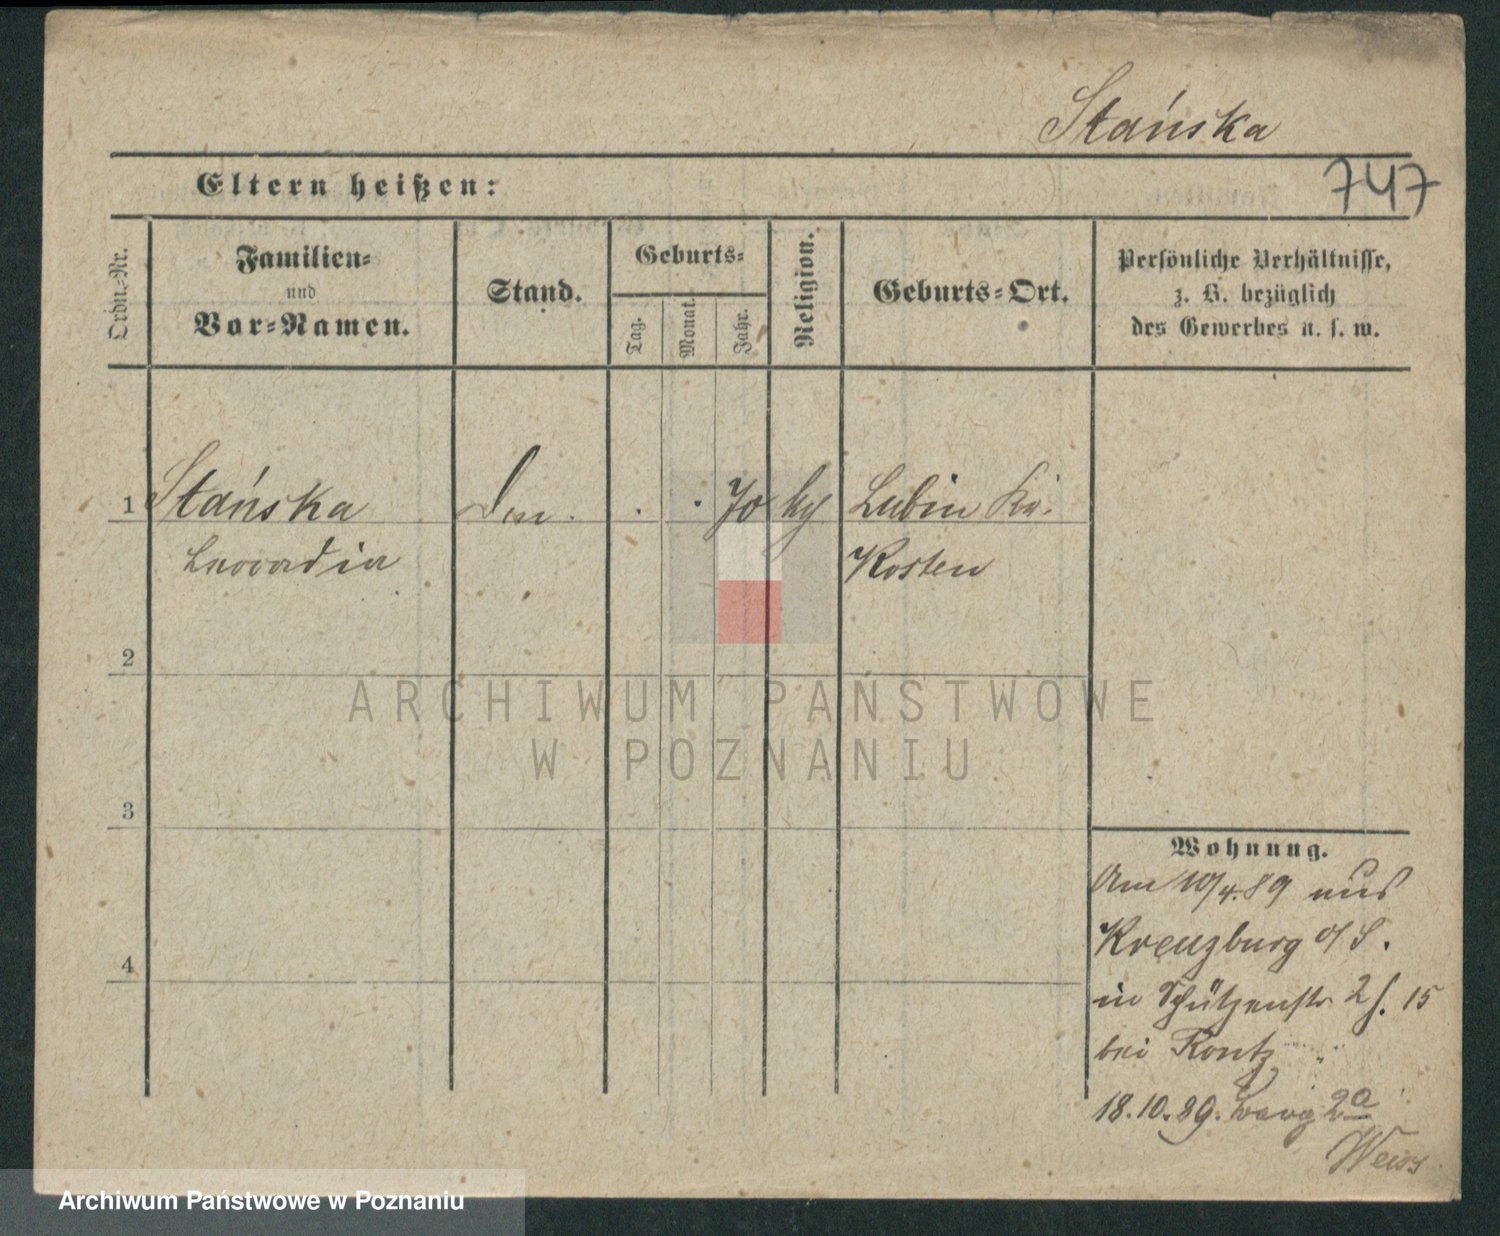 Stańska
Eltern heißen:
747
Ordn.-Nr.
Familien-
und
Vor-Namen.
Stand.
Geburts-
Tag.
Monat.
Jahr.
Religion.
Geburts-Ort.
Persönliche Verhältnisse,
z. B. bezüglich
des Gewerbes u. s. w.
1
Stańska
Leocadia
70
Lubin Kr.
Kosten
2
3
4
Wohnung.
Am 10/4.89 aus
Kreuzburg o/S.
in Schützenstr 2 f. 15
bei Kontz
18.10.89. 2a
Weiss
ARCHIWUM PAŃSTWOWE
W POZNANIU
Archiwum Państwowe w Poznaniu